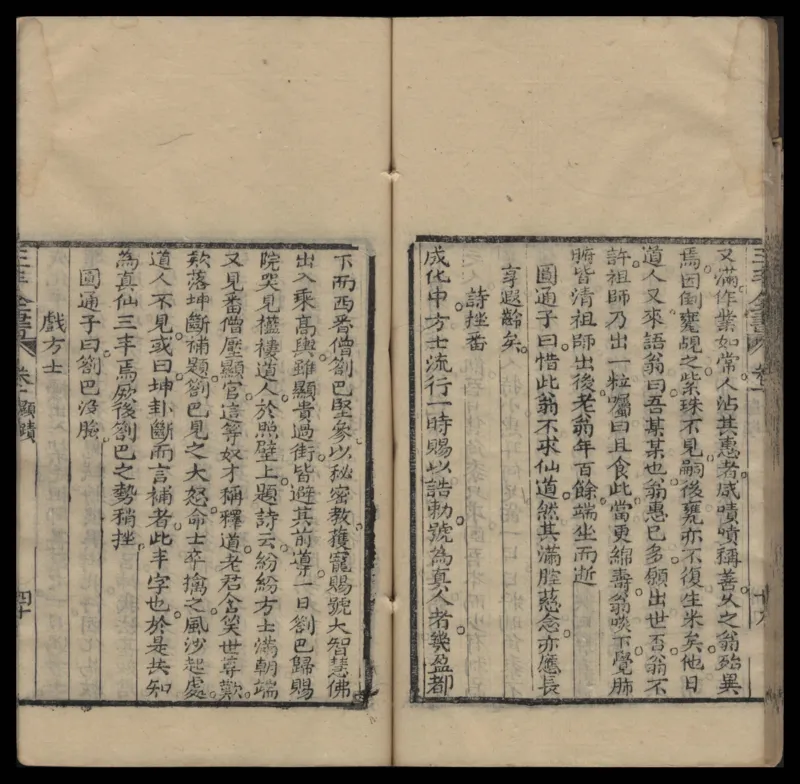 三丰全書 卷
又滿作業如常人沾其惠者咸嘖嘖稱善久之翁殆異
焉因倒甕覘之紫珠不見嗣後甕亦不復生米矣他日
道人又來語翁曰吾某某也翁惠已多願出世否翁不
許祖師乃出一粒囑曰且食此當更綿壽翁啖下覺肺
腑皆清祖師出後老翁年百餘端坐而逝
圓通子曰惜此翁不求仙道然其滿腔慈念亦應長
享遐齡矣
詩挫番
成化中方士流行一時賜以誥勅號為真人者幾盈都
下而西番僧劄巴堅參以秘密教獲寵賜號大智慧佛
出入乘高輿雖顯貴過街皆避其前導一日劄巴歸賜
院突見襤褸道人於照壁上題詩云紛紛方士滿朝端
又見番僧壓顯官這等奴才稱釋道老君含笑世尊歎
款落坤斷補題劄巴見之大怒命士卒擒之風沙起處
道人不見或曰坤卦斷而言補者此丰字也於是共知
為真仙三丰焉厥後劄巴之勢稍挫
圓通子曰劄巴沒臉
戲方士
三丰全書 卷一 顯蹟 四十